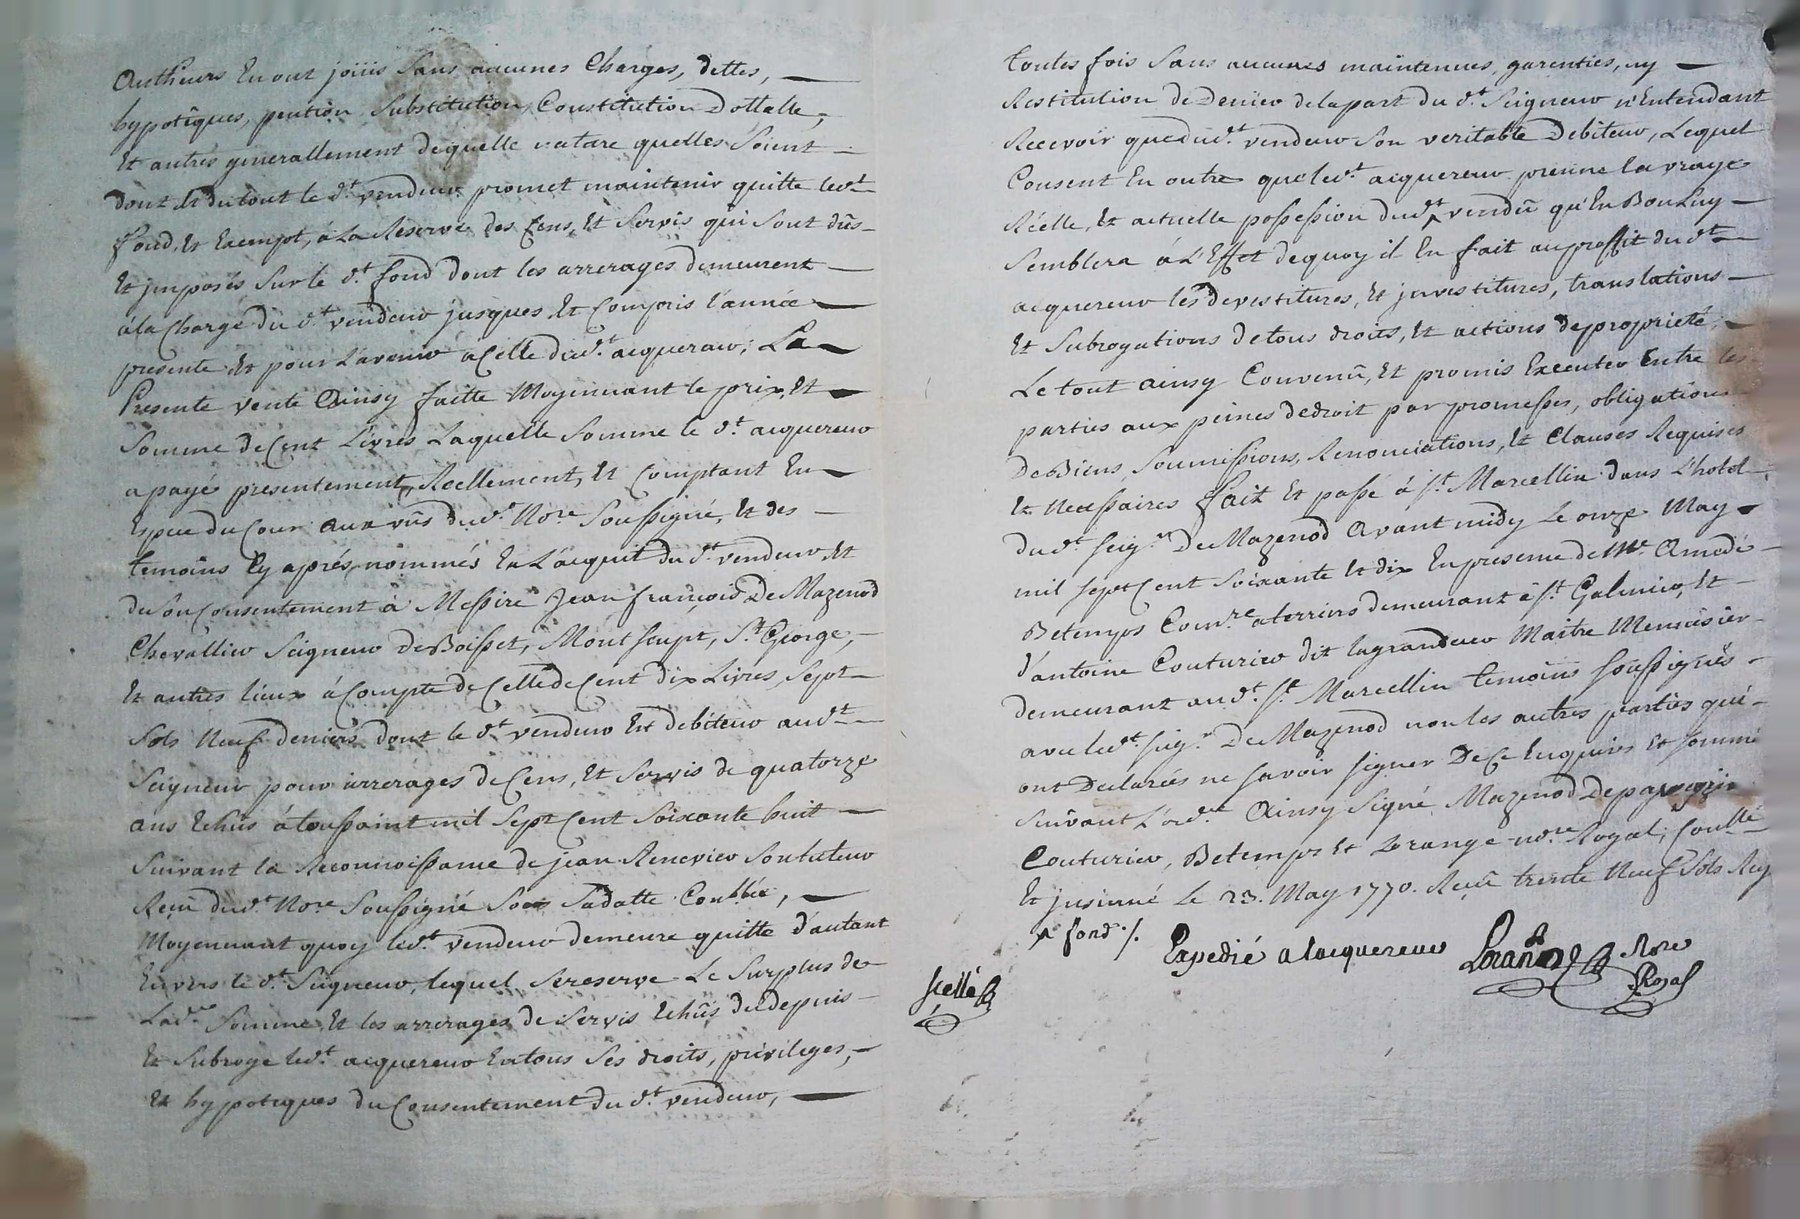 Autheurs En ont joüis Sans aucunes Charges, dettes,
hypotêques, pention Substitution, Constitution Dottalle,
Et autres generallement dequelle nature quelles Soient
dont Et dutout le dt. vendeur promet maintenir quitte ledt.
fond, Et Exempt, à La Reserve des Cens, Et Servis qui Sont dûs
Et jmposés Sur le dt. fond dont les arrerages demeurent
àla Charge du dt. vendeur jusques Et Compris l'année
presente Et pour L'avenir a Celle dudt. acquereur; La
Presente vente Ainsy faitte Moyennant le prix, Et
Somme de Cent Livres Laquelle Somme le dt. acquereur
a payé presentement, Réellement, Et Comptant En
Espece du Cour aux vûs dudt. Nore. Soussigné, Et des
temoins Cy aprés nommés En L'acquit du dt. vendeur, Et
de Son Consentement à Messire Jean françois De Mazenod
Chevallier Seigneur de Boisset, Mont Supt, St. George,
Et autres lieux à Compte de Celle de Cent dix Livres Sept
Sols Neuf deniers dont le dt. vendeur Est debiteur audt.
Seigneur pour arrerages de Cens, Et Servis de quatorze
ans Echûs à toussaint mil Sept Cent Soixante huit
Suivant la Reconnoissance de jean Renevier Son tuteur
Reçû dudt. Nore. Soussigné Sous Sa datte Conllée,
Moyennant quoy ledt. vendeur demeure quitte d'autant
Envers le dt. Seigneur, lequel Se reserve Le Surplus de
Lade. Somme, Et les arrerages de Servis Echûs de depuis
Et Subroge ledt. acquereur En tous Ses droits, privileges,
Et hypoteques du Consentement du dt. vendeur,
toutes fois Sans aucunes maintenues, garenties, ny
Restitution de Denier dela part du dt. Seigneur n'Entendant
Recevoir que dudt. vendeur Son veritable Debiteur, Lequel
Consent En outre que ledt. acquereur prenne la vraye
Réelle, Et actuelle possession dudt. ^ vendû qu'En Bon Luy
Semblera à L'Effet dequoy il En fait au proffit du dt.
acquereur les devestitures, Et jnvestitures, translations
Et Subrogations de tous droits, Et actions de proprieté;
Le tout ainsy Convenû, Et promis Executer Entre les
parties aux peines de droit par promesses, obligations
de Biens, Soumissions, Renonciations, Et Clauses Requises
Et Necessaires fait Et passé à St. Marcellin dans L'hotel
dudt. Seigr. De Mazenod Avant midy Le onze May
mil Sept Cent Soixante Et dix En presence de Mr. Amedé
Betemps Comre. a terriers demeurant à St. Galmier, Et
d'antoine Couturier dit lagrandeur Maitre Menuisier
demeurant audt. St. Marcellin temoins Soussignés
avec ledt. Seigr. De Mazenod non les autres parties qui
ont Declarées ne Savoir Signer De Ce Enquises Et Sommé
Suivant L'orde. Ainsy Signé Mazenod
Couturier, Betemps Et Lorange nore. Royal; Conllé
Et jnsinué Le 23. May 1770. Reçû trente Neuf Sols
^ fond ./.
Expedié a lacquereur Lorange Nore
Royal
Scellé